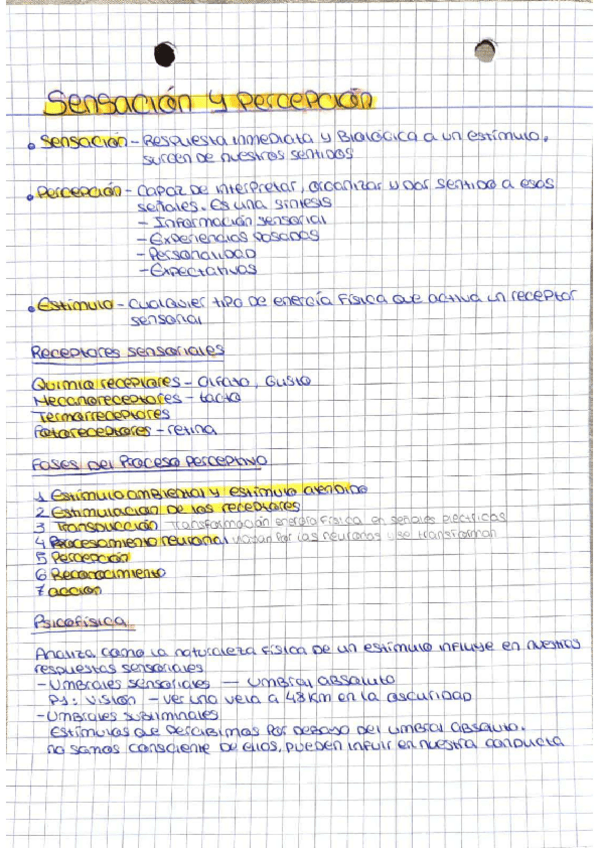 Sensación y percepción
• Sensación - Respuesta inmediata y Biológica a un estímulo,
surgen de nuestros sentidos
• Percepción - capaz de interpretar, organizar y dar sentido a esas
señales. Es una síntesis
- Información sensorial
- Experiencias pasadas
- Personalidad
- Expectativas
• Estímulo - Cualquier tipo de energía física que activa un receptor
sensorial
Receptores sensoriales
Quimio receptores - olfato, Gusto
Mecanoreceptores - tacto
Termorreceptores
Fotoreceptores - retina
Fases del Proceso perceptivo
1 Estímulo ambiental y estímulo atendido
2 Estimulación de los receptores
3 Transducción transformación energía física en señales eléctricas
4 Procesamiento neuronal viajan por las neuronas y se transforman
5 Percepción
6 Reconocimiento
7 acción
Psicofísica
Analiza como la naturaleza física de un estímulo influye en nuestras
respuestas sensoriales
- Umbrales sensoriales — umbral absoluto
Pj: visión - ver una vela a 48 Km en la oscuridad
- Umbrales subliminales
Estímulos que percibimos por debajo del umbral absoluto.
no somos consciente de ellos, pueden influir en nuestra conducta